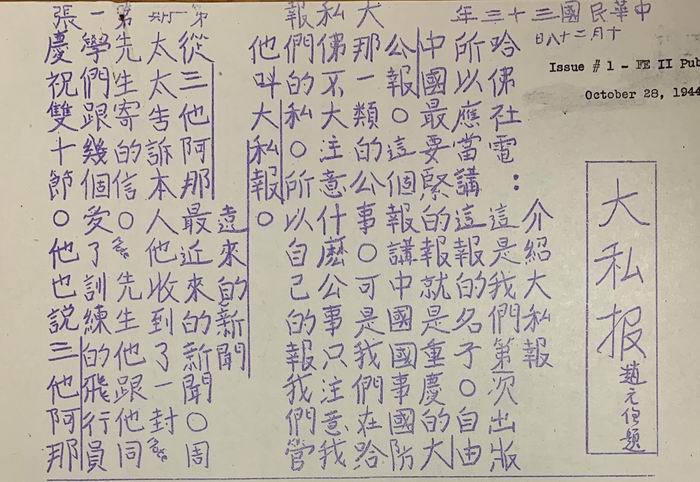 中華民國三十三年
十月二十八日
大私報 第一期 第一張
Issue # 1 - FE II Pub
October 28, 1944
大私报
趙元任題
介紹大私報
哈佛社電:這是我們第次出版
所以應當講這報的名子。自由
中國最要緊的報就是重慶的大
公報。這個報講中國國事國防
那一類的公事。可是我們在哈
佛不大注意什麽公事只注意我
們的私。所以自己的報我們管
他叫大私報。
遠來的新聞
從三他阿那最近來的新聞。周
太太告訴本人他收到了一封
先生寄的信。先生他跟他同
學們跟幾個受了訓練的飛行員
慶祝雙十節。他也說三他阿那